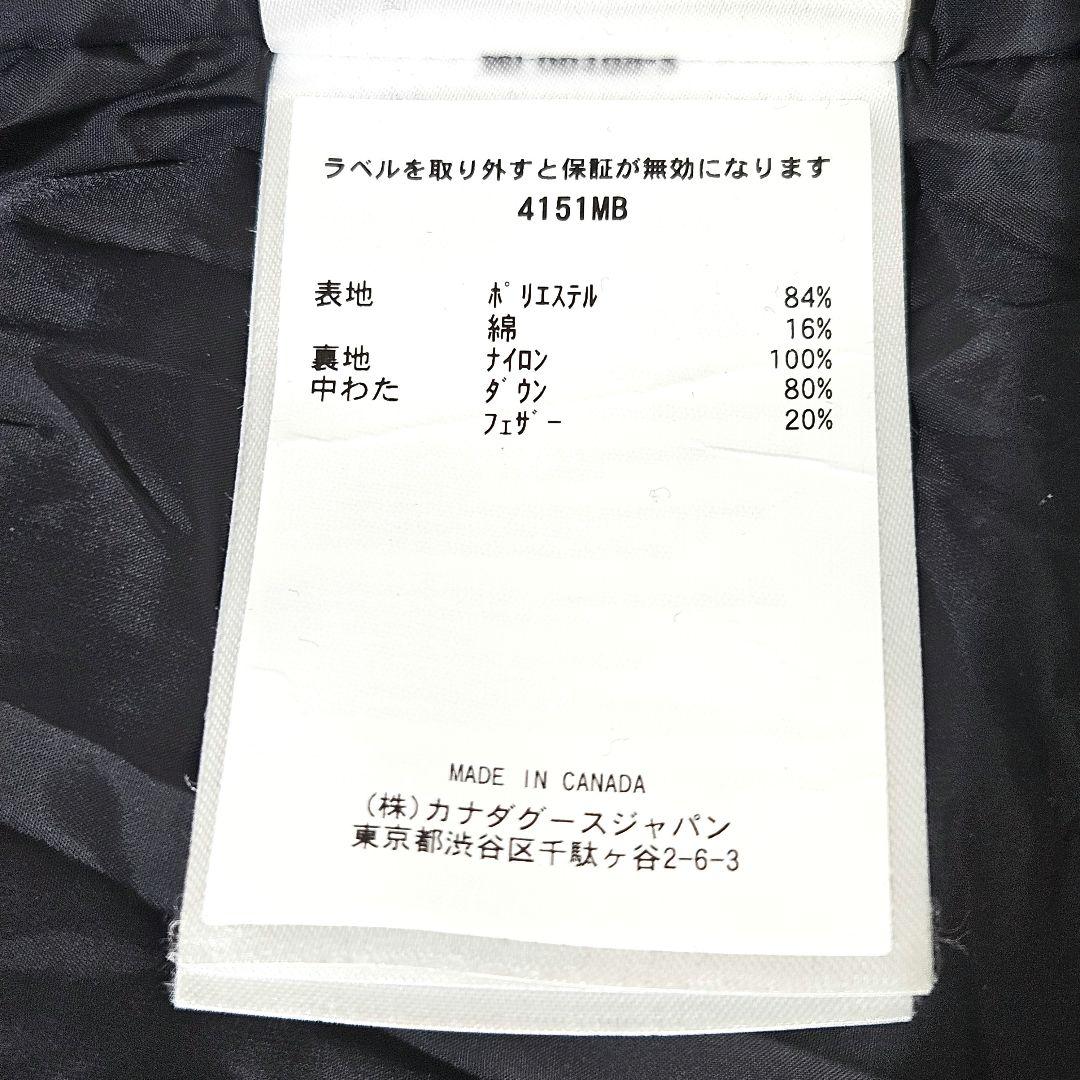 ラベルを取り外すと保証が無効になります
4151MB
表地 ﾎﾟﾘｴｽﾃﾙ 84%
綿 16%
裏地 ﾅｲﾛﾝ 100%
中わた ﾀﾞｳﾝ 80%
ﾌｪｻﾞｰ 20%
MADE IN CANADA
(株)カナダグースジャパン
東京都渋谷区千駄ヶ谷2-6-3